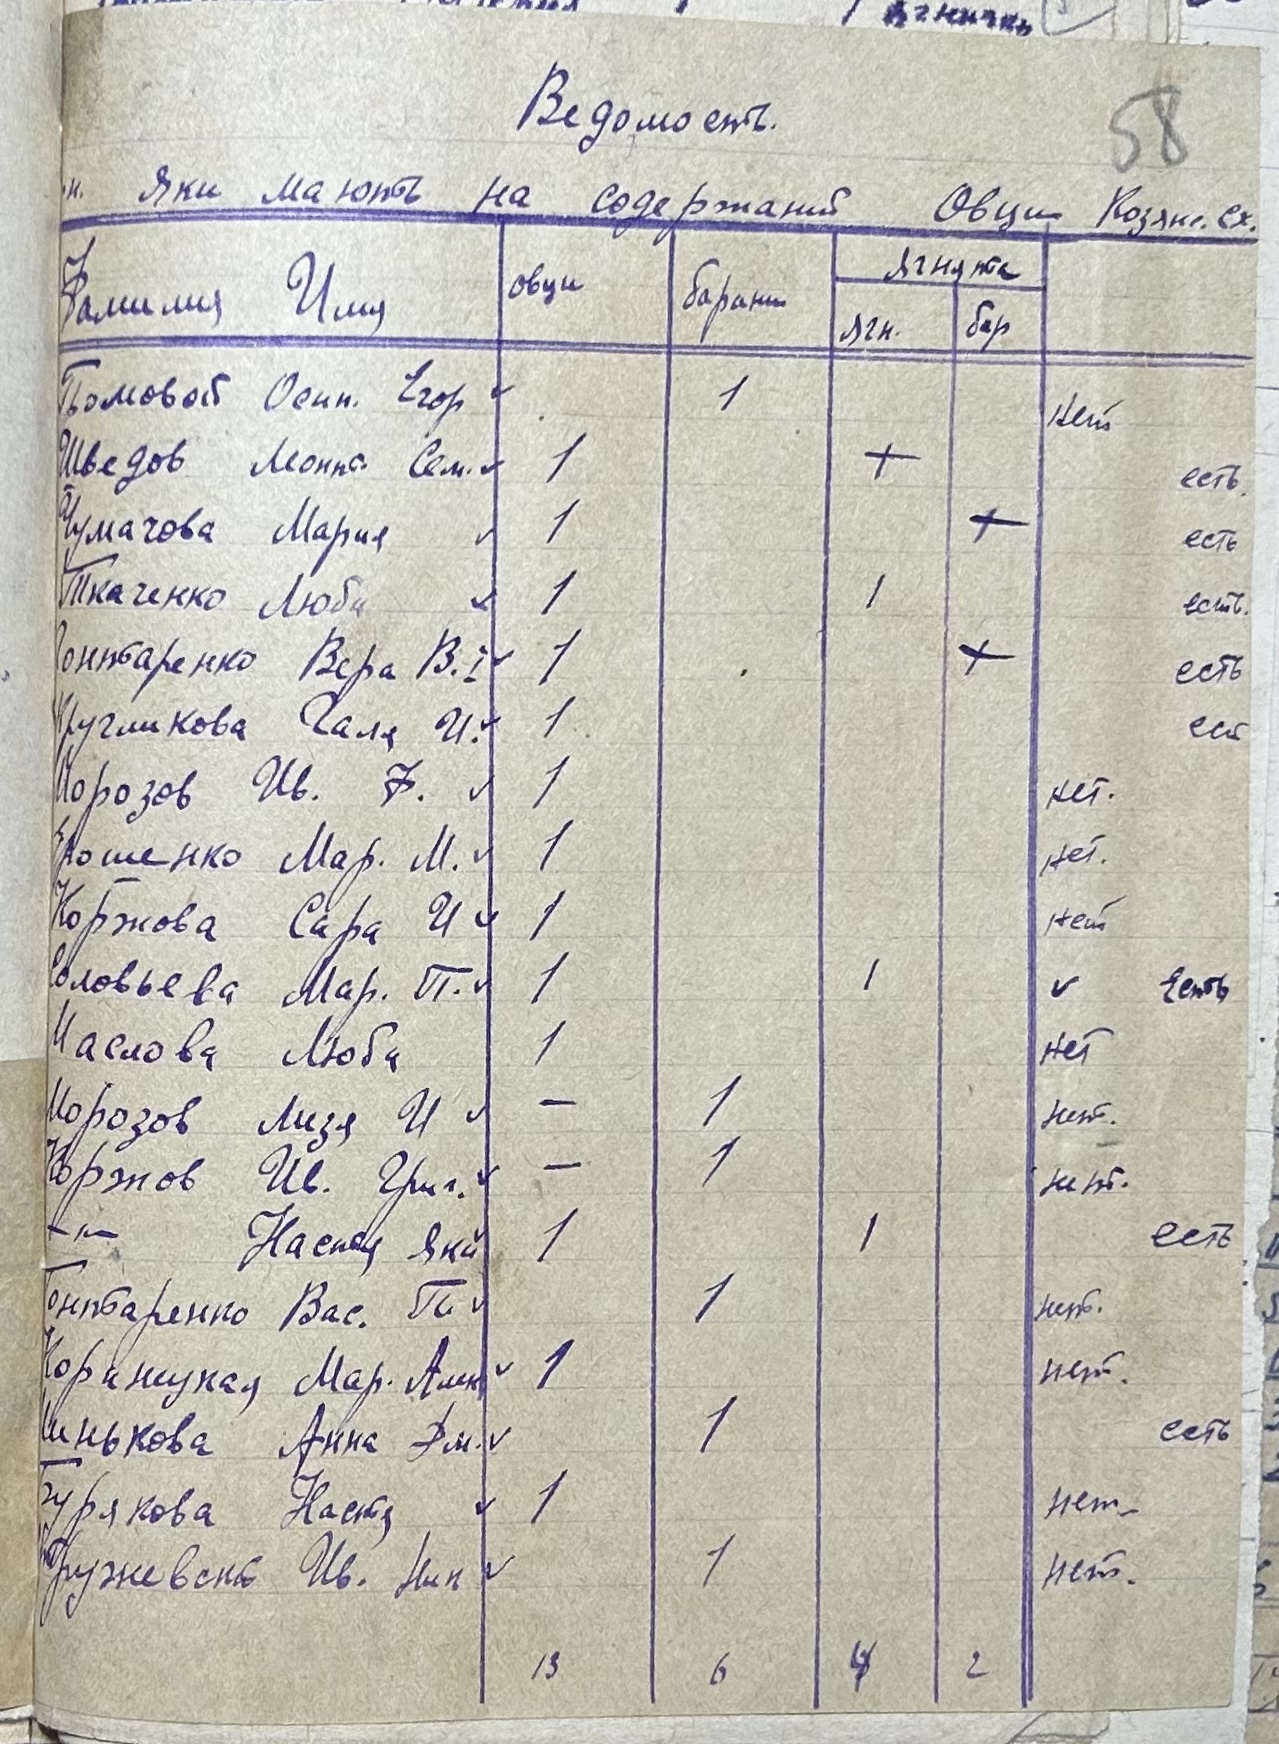 ягнички
Ведомость.
58
н. яки мають на содержаний Овци Козянс. сх.
Фамилия Имя овци барани ягнята
ягн. бар
Громовой Осип. Егор ✓ 1 нет
Шведов Леонт. Сем. ✓ 1 + есть.
Чумачова Мария ✓ 1 + есть
Ткаченко Люба ✓ 1 1 есть.
Гонтаренко Вера В.І ✓ 1 + есть
Кругликова Галя И. ✓ 1 ест
Морозов Ив. Ф. ✓ 1 нет.
Ерошенко Мар. М. ✓ 1 нет.
Коржова Сара И ✓ 1 нет
Соловьева Мар. П. ✓ 1 1 ✓ Есть
Маслова Люба 1 нет
Морозов Лизя И ✓ — 1 нет.
Коржов Ив. Григ. ✓ — 1 нет.
—"— Настя Яки 1 1 есть
Гонтаренко Вас. Пи ✓ 1 нет.
Мар. Алек ✓ 1 нет.
Минькова Анна Дм. ✓ 1 есть
Бурякова Настя ✓ 1 нет
Ив. Ник ✓ 1 нет.
13 6 4 2